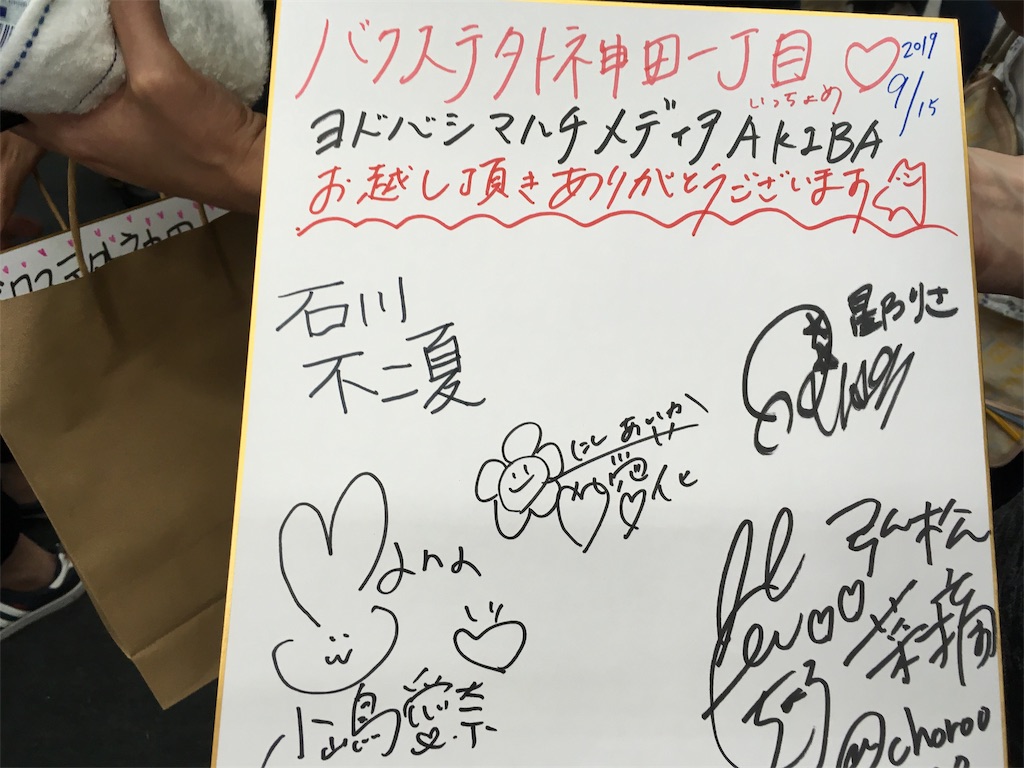 バクステ外神田一丁目♡ 2019
いっちょめ 9/15
ヨドバシマルチメディアAKIBA
お越し頂きありがとうございます
石川
不二夏
星乃りさ
にし あいか
愛化
Mana
小島愛奈
弘松
菜摘
@choroo